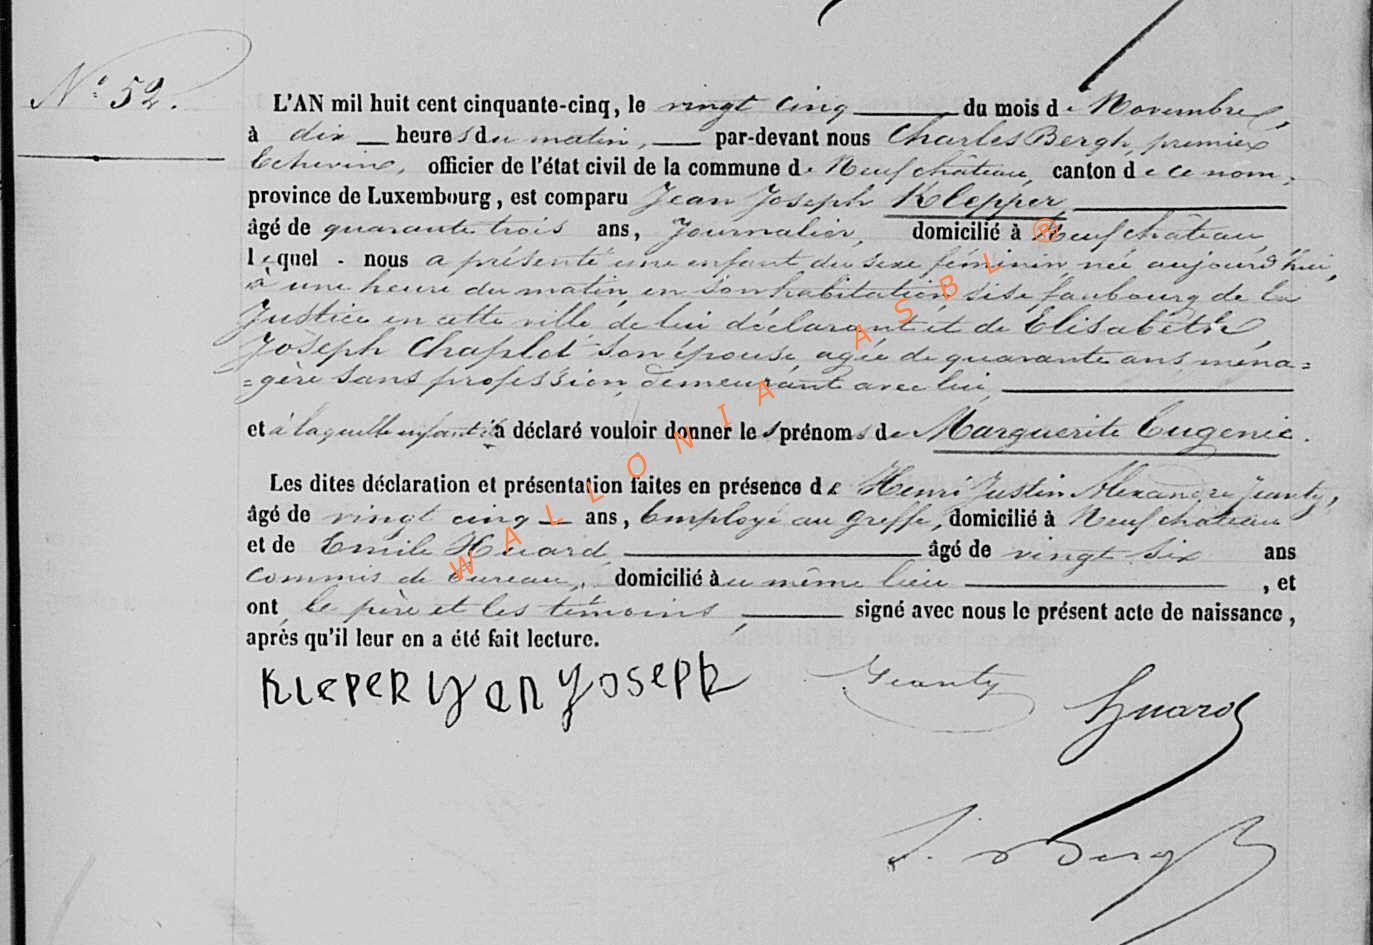 N° 52.
L'AN mil huit cent cinquante-cinq, le vingt cinq du mois de Novembre,
à dix heures du matin, par-devant nous Charles Bergh, premier
Echevin, officier de l'état civil de la commune de Neufchâteau, canton de ce nom,
province de Luxembourg, est comparu Jean Joseph Klepper
âgé de quarante trois ans, Journalier, domicilié à Neufchâteau,
lequel nous a présenté une enfant du sexe féminin, née aujourd'hui,
à une heure du matin, en son habitation, sise faubourg de la
Justice en cette ville, de lui déclarant et de Elisabeth
Joseph Chaplot son épouse, agée de quarante ans, ména=
=gère sans profession, demeurant avec lui,
et à laquelle enfant il a déclaré vouloir donner les prénoms de Marguerite Eugenie.
Les dites déclaration et présentation faites en présence de Henri Justin Alexandre Jeanty,
âgé de vingt cinq ans, Employé au greffe, domicilié à Neufchateau
et de Emile Huard, âgé de vingt six ans
commis de bureau, domicilié au même lieu, et
ont, le père et les témoins, signé avec nous le présent acte de naissance,
après qu'il leur en a été fait lecture.
KLEPER YAN YOSEPH Jeanty Huard
Bergh
WALLONIA ASBL ®